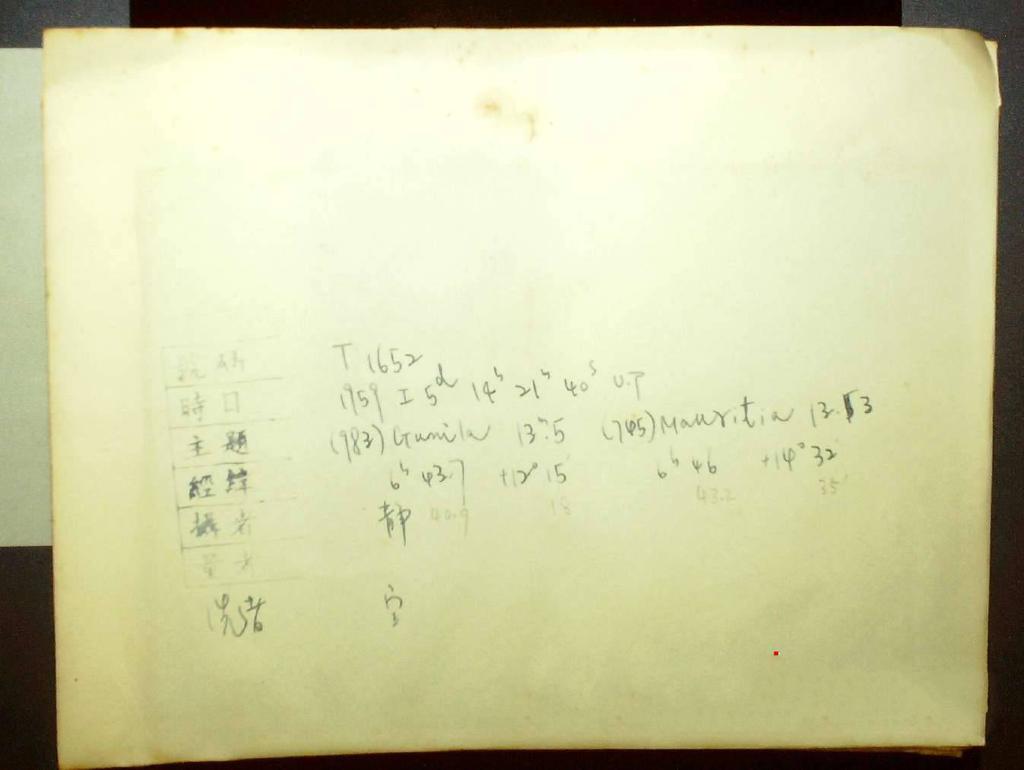 號碼 T 1652
時日 1959 I 5d 14h 21h 40s U.T
主題 (983) Gunila 13m.5 (745) Mauritia 13.53
經緯 6h 43.7 +12° 15 6h 46 +14° 32'
攝者 靜 40.9 18 43.2 35'
量者
洗者 宝